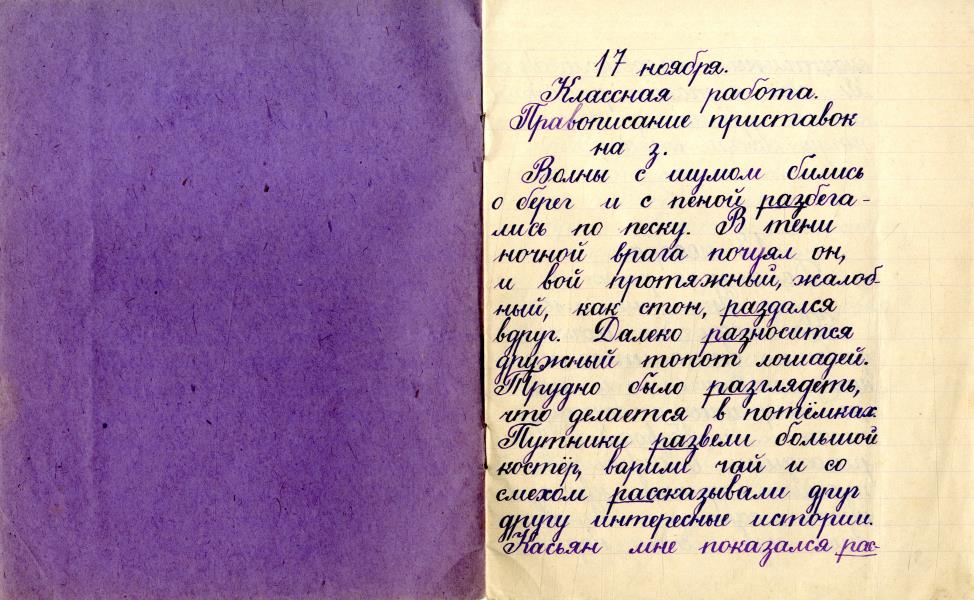 17 ноября.
Классная работа.
Правописание приставок
на з.
Волны с шумом бились
о берег и с пеной разбега-
лись по песку. В тени
ночной врага почуял он,
и вой протяжный, жалоб-
ный, как стон, раздался
вдруг. Далеко разносится
дружный топот лошадей.
Трудно было разглядеть,
что делается в потёмках.
Путники развели большой
костёр, варили чай и со
смехом рассказывали друг
другу интересные истории.
Касьян мне показался рас-